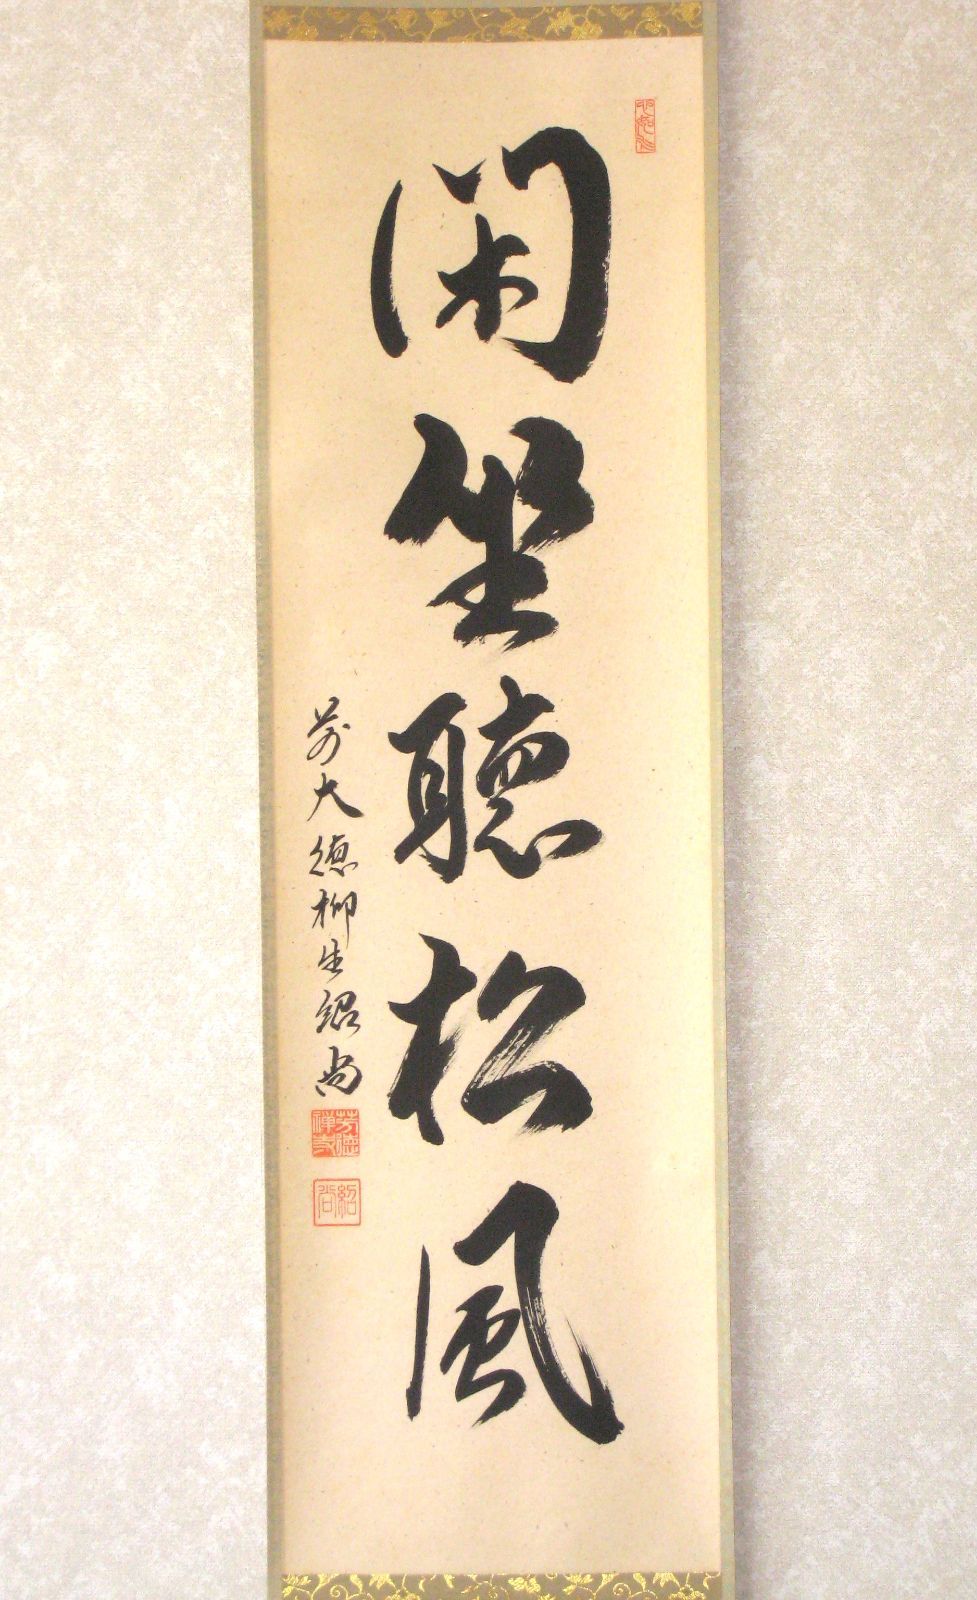 閑坐聴松風
前大徳柳生紹尚
芳徳禅寺
紹尚